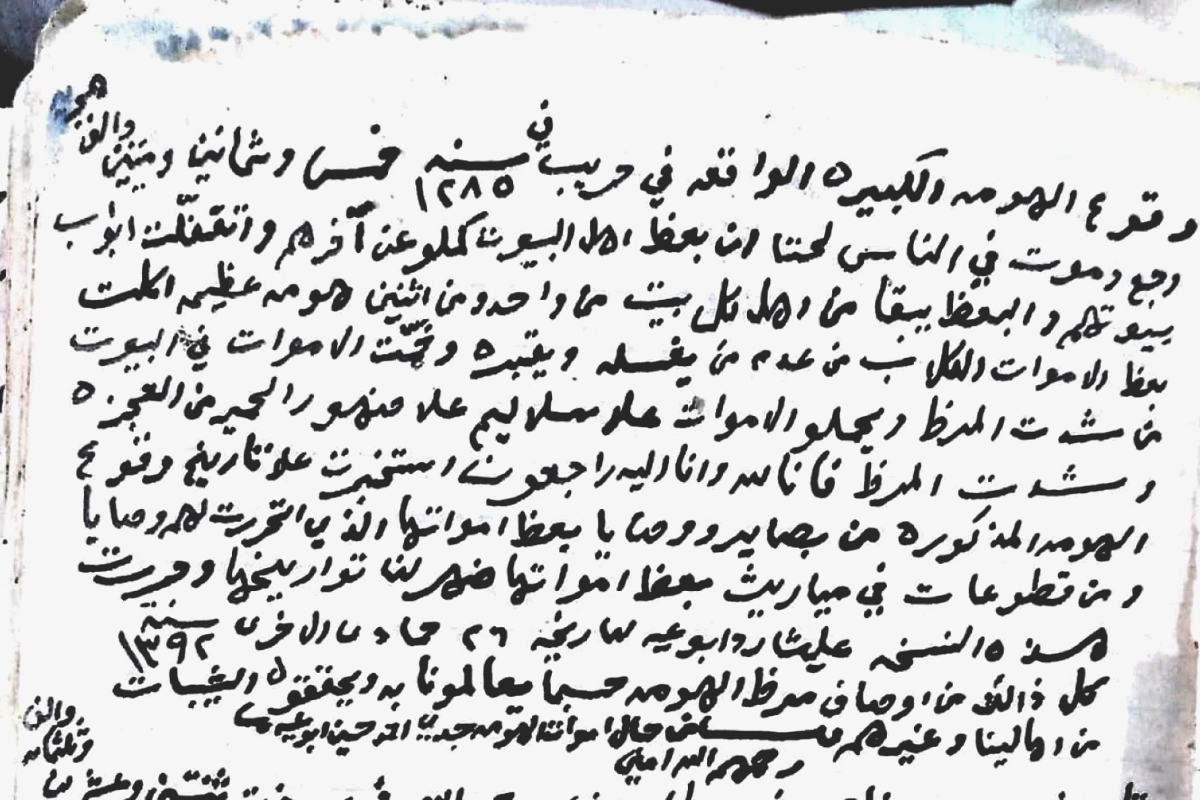 وقوع الهومه الكبيره الواقعه في حريب في سنه ١٢٨٥ خمس وثمانين وميتين والف هجريه
وجع وموت في الناس لحتا ان بعظ اهل البيوت كملو عن آخرهم واتقفلت ابواب
بيوتهم والبعظ يبقا من اهل كل بيت من واحد ومن اثنين هومه عظيمه اكلت
بعظ الاموات الكلاب من عدم من يغسله ويقبره وخمّت الاموات في البيوت
من شدت المرظ ويحملو الاموات علا سلاليم علا ضهور الحمير من العجزه
وشدت المرظ فانا لله وانا اليه راجعون استخبرت علا تاريخ وقوع
الهومه المذكوره من بصاير ووصايا بعظ امواتها الذي اتحررت لهم وصايا
ومن قطوعات في مياريث بعظ امواتها ضهر لنا تواريخها وحررت
هذه النسخه بتاريخه ٢٦ جماد الاخرى سنة ١٣٩٢
كل ذالك من اوصاف مرظ الهومه حسبما يعالمونا به ويحققوه الشيبات
من اهالينا وغيرهم ومن حال اموات الهومه جدي احمد حسين
والف وثلثمايه
رحمهم الله امين